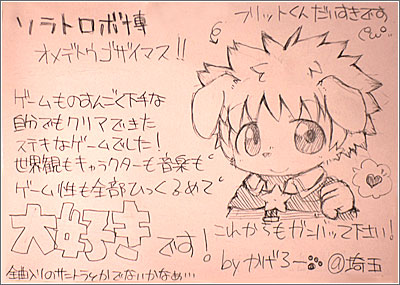 ソラトロボ博
オメデトウゴザイマス!!
フリットくんだいすきです
ゲームものすんごく下手な
自分でもクリアできた
ステキなゲームでした!
世界観もキャラクターも音楽も
ゲーム性も全部ひっくるめて
大好きです!
これからもガンバって下さい!
byかげろー @埼玉
全曲入りのサントラとかでないかなぁ…